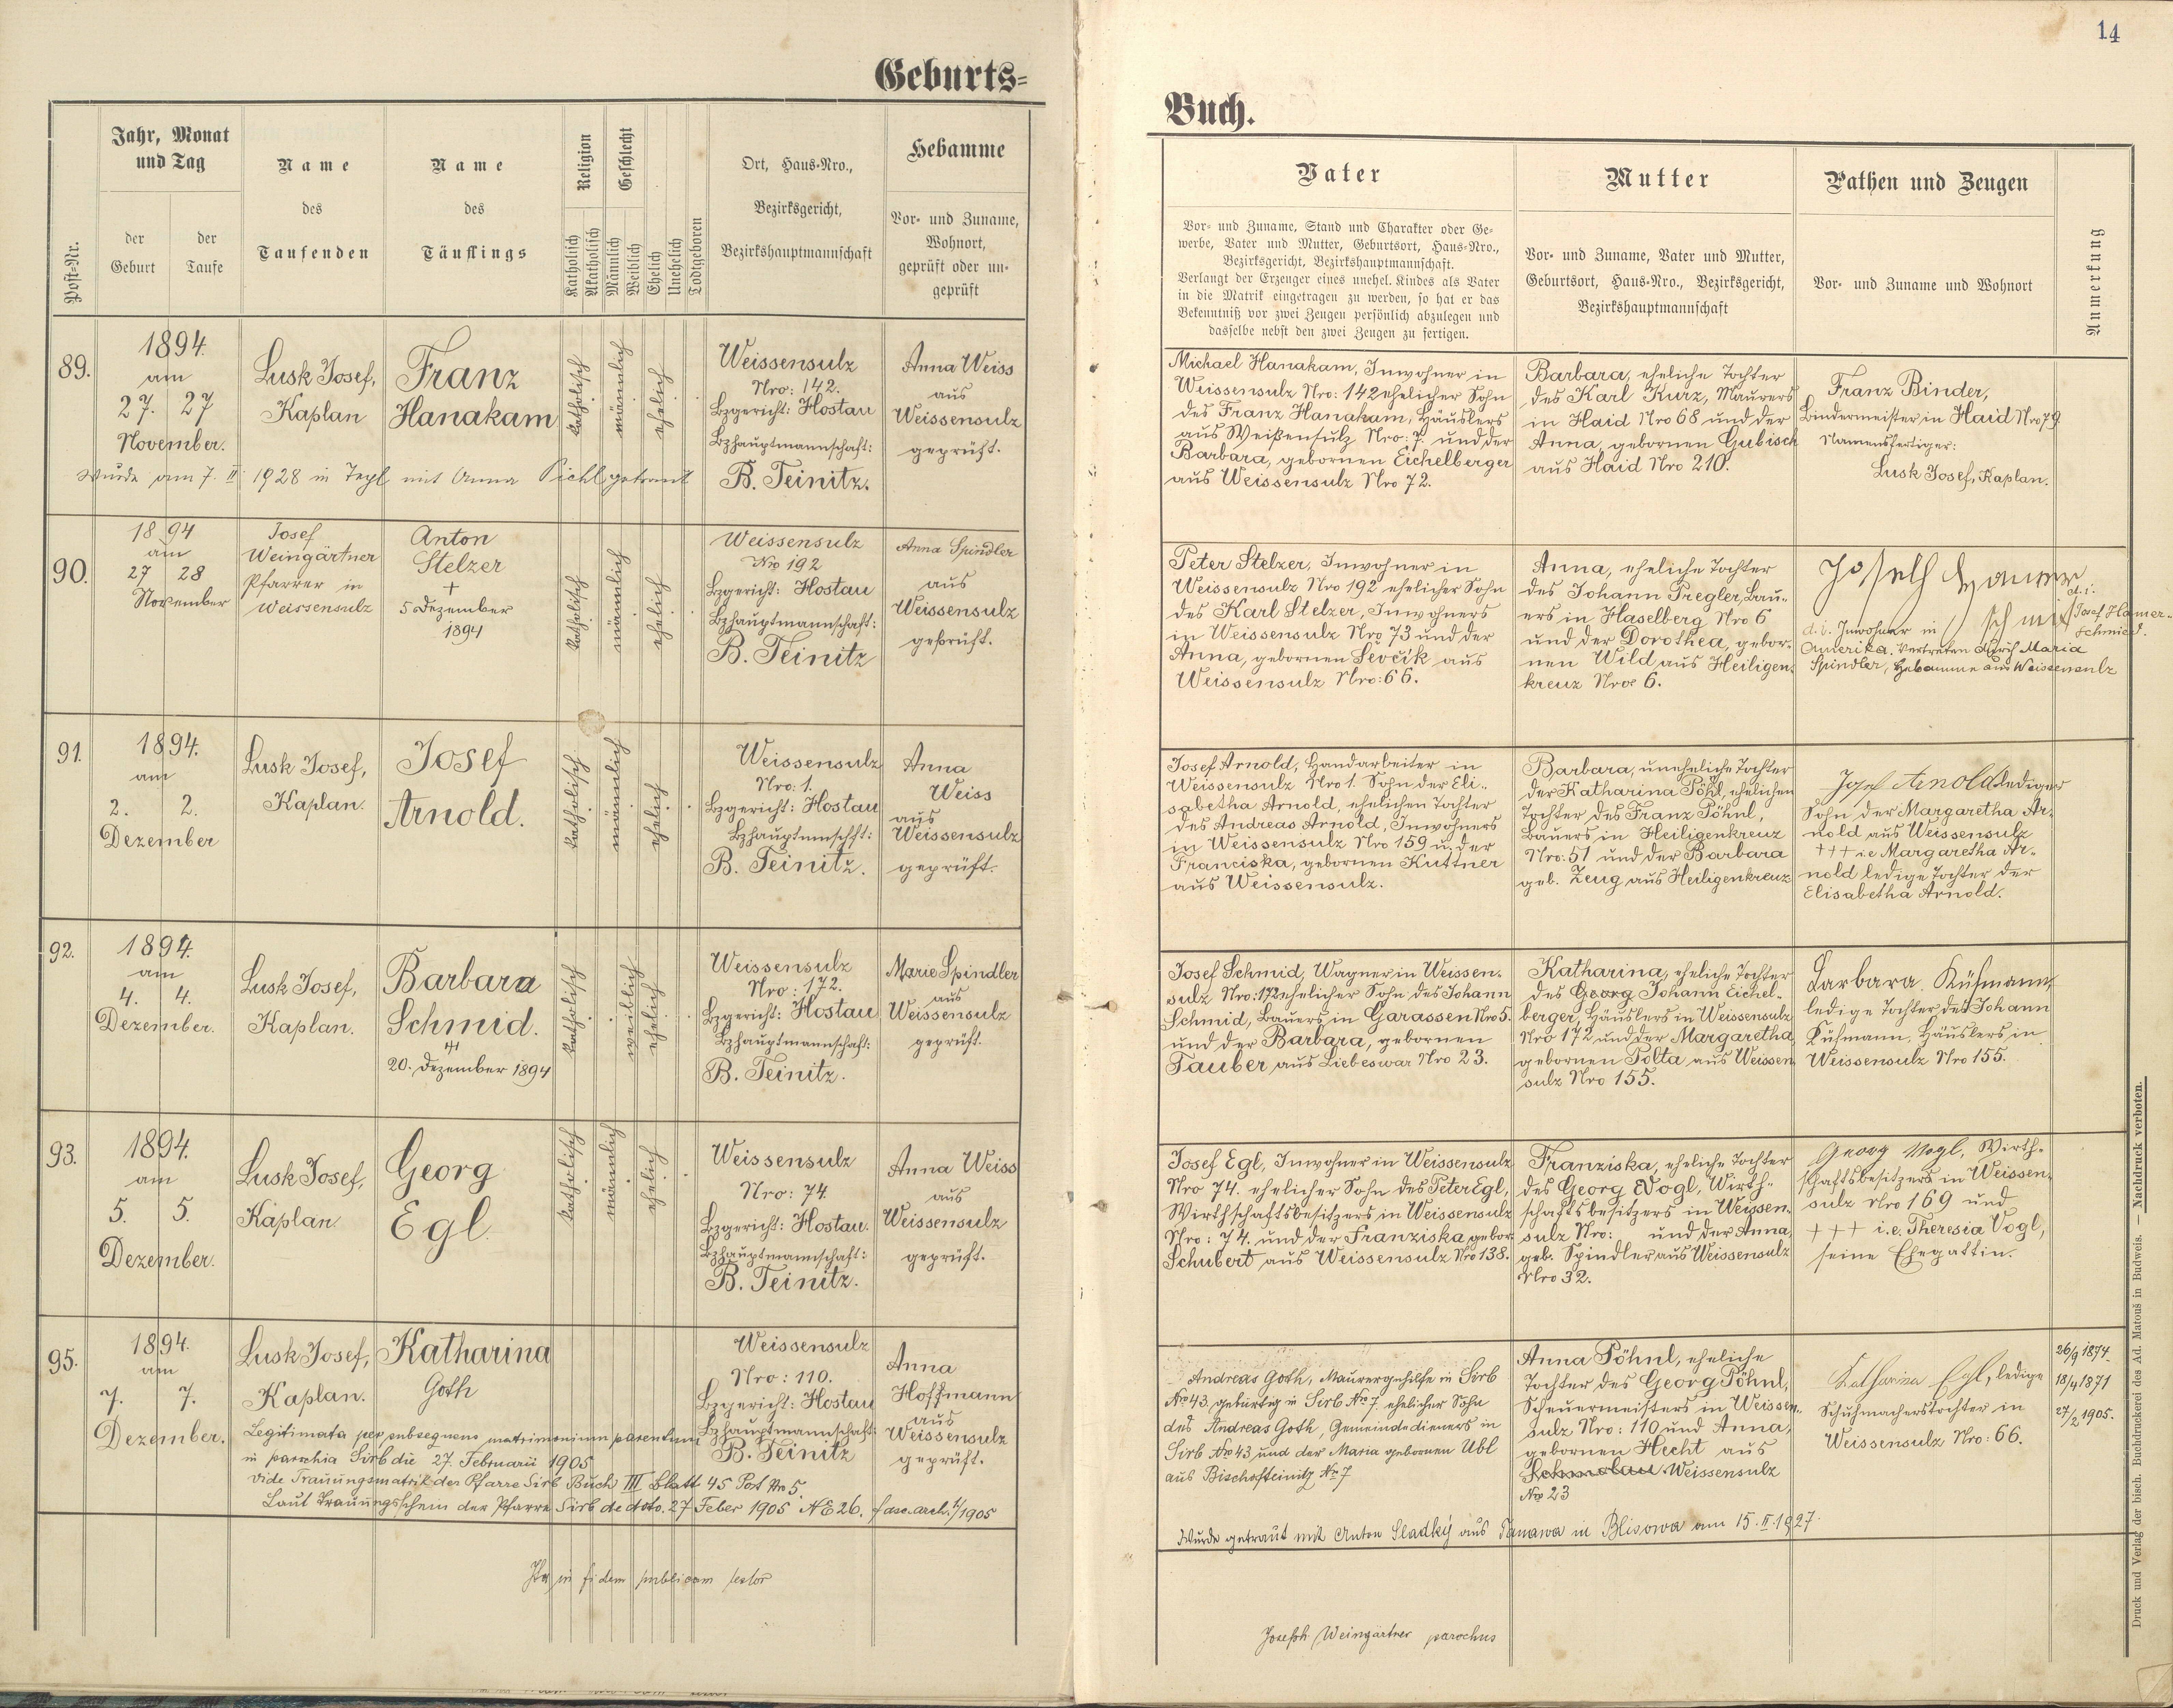 14
Geburts=
Buch.
Post-Nr.
Jahr, Monat
und Tag
der
Geburt
der
Taufe
Name
des
Taufenden
Name
des
Täuflings
Religion
Katholisch
Akatholisch
Geschlecht
Männlich
Weiblich
Ehelich
Unehelich
Todtgeboren
Ort, Haus-Nro.,
Bezirksgericht,
Bezirkshauptmannschaft
Hebamme
Vor- und Zuname,
Wohnort,
geprüft oder un-
geprüft
Vater
Vor- und Zuname, Stand und Charakter oder Ge-
werbe, Vater und Mutter, Geburtsort, Haus-Nro.,
Bezirksgericht, Bezirkshauptmannschaft.
Verlangt der Erzeuger eines unehel. Kindes als Vater
in die Matrik eingetragen zu werden, so hat er das
Bekenntniß vor zwei Zeugen persönlich abzulegen und
dasselbe nebst den zwei Zeugen zu fertigen.
Mutter
Vor- und Zuname, Vater und Mutter,
Geburtsort, Haus-Nro., Bezirksgericht,
Bezirkshauptmannschaft
Pathen und Zeugen
Vor- und Zuname und Wohnort
Anmerkung
89.
1894.
am
27. 27
November.
Lusk Josef,
Kaplan
Franz
Hanakam
katholisch
männlich
ehelich
Weissensulz
Nro: 142.
Bzgericht: Hostau
Bzhauptmannschaft:
B. Teinitz.
Anna Weiss
aus
Weissensulz
geprüft.
Wurde am 7. II 1928 in Tepl mit Anna Pichl getraut
Michael Hanakam, Inwohner in
Weissensulz Nro: 142 ehelicher Sohn
des Franz Hanakam, Häuslers
aus Weißensulz Nro: 7. und der
Barbara, gebornen Eichelberger
aus Weissensulz Nro 72.
Barbara, eheliche Tochter
des Karl Kurz, Maurers
in Haid Nro 68 und der
Anna, gebornen Gubisch
aus Haid Nro 210.
Franz Binder,
Bindermeister in Haid Nro 79.
Namensfertiger:
Lusk Josef, Kaplan.
90.
1894
am
27 28
November
Josef
Weingärtner
Pfarrer in
Weissensulz
Anton
Stelzer
+
5 Dezember
1894
katholisch
männlich
ehelich
Weissensulz
Nro 192
Bzgericht: Hostau
Bzhauptmannschaft:
B. Teinitz
Anna Spindler
aus
Weissensulz
geprüft.
Peter Stelzer, Inwohner in
Weissensulz Nro 192 ehelicher Sohn
des Karl Stelzer, Inwohners
in Weissensulz Nro 73 und der
Anna, gebornen Sevčik aus
Weissensulz Nro: 66.
Anna, eheliche Tochter
des Johann Pregler, Bau-
ers in Haselberg Nro 6
und der Dorothea, gebor-
nen Wild aus Heiligen-
kreuz Nro 6.
Joseph Hamer
schmid
d. i.
Josef Hamer-
schmied.
d. i. Inwohner in
Amerika. Vertreten durch Maria
Spindler, Hebamme aus Weissensulz
91.
1894.
am
2. 2.
Dezember
Lusk Josef,
Kaplan.
Josef
Arnold.
katholisch
männlich
ehelich
Weissensulz
Nro: 1.
Bzgericht: Hostau
Bzhauptmnschft:
B. Teinitz.
Anna
Weiss
aus
Weissensulz
geprüft.
Josef Arnold, Handarbeiter in
Weissensulz Nro 1. Sohn der Eli-
sabetha Arnold, ehelichen Tochter
des Andreas Arnold, Inwohners
in Weissensulz Nro 159 u. der
Franciska, gebornen Kuttner
aus Weissensulz.
Barbara, uneheliche Tochter
der Katharina Pöhl, ehelichen
Tochter des Franz Pöhnl,
Bauers in Heiligenkreuz
Nro: 51 und der Barbara
geb. Zeug aus Heiligenkreuz
Josef Arnold lediger
Sohn der Margaretha Ar-
nold aus Weissensulz
+++ i.e Margaretha Ar-
nold ledige Tochter der
Elisabetha Arnold.
92.
1894.
am
4. 4.
Dezember.
Lusk Josef,
Kaplan.
Barbara
Schmid.
20. Dezember 1894
katholisch
weiblich
ehelich
Weissensulz
Nro: 172.
Bzgericht: Hostau
Bzhauptmannschaft:
B. Teinitz.
Marie Spindler
aus
Weissensulz
geprüft.
Josef Schmid, Wagner in Weissen-
sulz Nro: 172 ehelicher Sohn des Johann
Schmid, Bauers in Garassen Nro 5.
und der Barbara, gebornen
Tauber aus Liebeswar Nro 23.
Katharina, eheliche Tochter
des Georg Johann Eichel-
berger, Häuslers in Weissensulz
Nro 172 und der Margaretha
gebornen Polta aus Weissen
sulz Nro 155.
Barbara Küfmann
ledige Tochter des Johann
Küfmann, Häuslers in
Weissensulz Nro 155.
93.
1894.
am
5. 5.
Dezember.
Lusk Josef,
Kaplan
Georg
Egl.
katholisch
männlich
ehelich
Weissensulz
Nro: 74
Bzgericht: Hostau.
Bzhauptmannschaft:
B. Teinitz.
Anna Weiss
aus
Weissensulz
geprüft.
Josef Egl, Inwohner in Weissensulz
Nro 74. ehelicher Sohn des Peter Egl,
Wirthschaftsbesitzers in Weissensulz
Nro: 74. und der Franziska, gebor
Schubert aus Weissensulz Nro 138.
Franziska, eheliche Tochter
des Georg Vogl, Wirth-
schaftsbesitzers in Weissen-
sulz Nro: und der Anna,
geb. Spindler aus Weissensulz
Nro 32.
Georg Vogl, Wirth-
schaftsbesitzers in Weissen-
sulz Nro 169 und
+++ i.e. Theresia Vogl,
seine Ehegattin.
95.
1894.
am
7. 7.
Dezember.
Lusk Josef,
Kaplan.
Katharina
Goth
Weissensulz
Nro: 110.
Bzgericht: Hostau
Bzhauptmannschaft:
B. Teinitz
Anna
Hoffmann
aus
Weissensulz
geprüft.
Legitimata per subsequens matrimonium parentum
in parochia Sirb die 27. Februarii 1905
vide Trauungsmatrik der Pfarre Sirb Buch III Blatt 45 Post Nro 5.
Laut Trauungsschein der Pfarre Sirb de dto. 27 Feber 1905 NE 26. fasc. arch. 1/1905
Andreas Goth, Maurergehilfe in Sirb
Nro 43, gebürtig in Sirb Nro 7. ehelicher Sohn
des Andreas Goth, Gemeindedieners in
Sirb Nro 43 und der Maria gebornen Ubl
aus Bischofteinitz No 7
Anna Pöhnl, eheliche
Tochter des Georg Pöhnl,
Scheuermeisters in Weissen-
sulz Nro: 110 und Anna,
gebornen Hecht aus
Weissensulz
Nro 23
Katharina Egl, ledige
Schuhmacherstochter in
Weissensulz Nro: 66.
26/9 1874.
18/4 1871
27/2 1905.
Wurde getraut mit Anton Sladký aus Tanawa in Blisowa am 15. II. 1927.
in fidem publicam testor
Joseph Weingärtner parochus
Druck und Verlag der bisch. Buchdruckerei des Ad. Matouš in Budweis. — Nachdruck verboten.